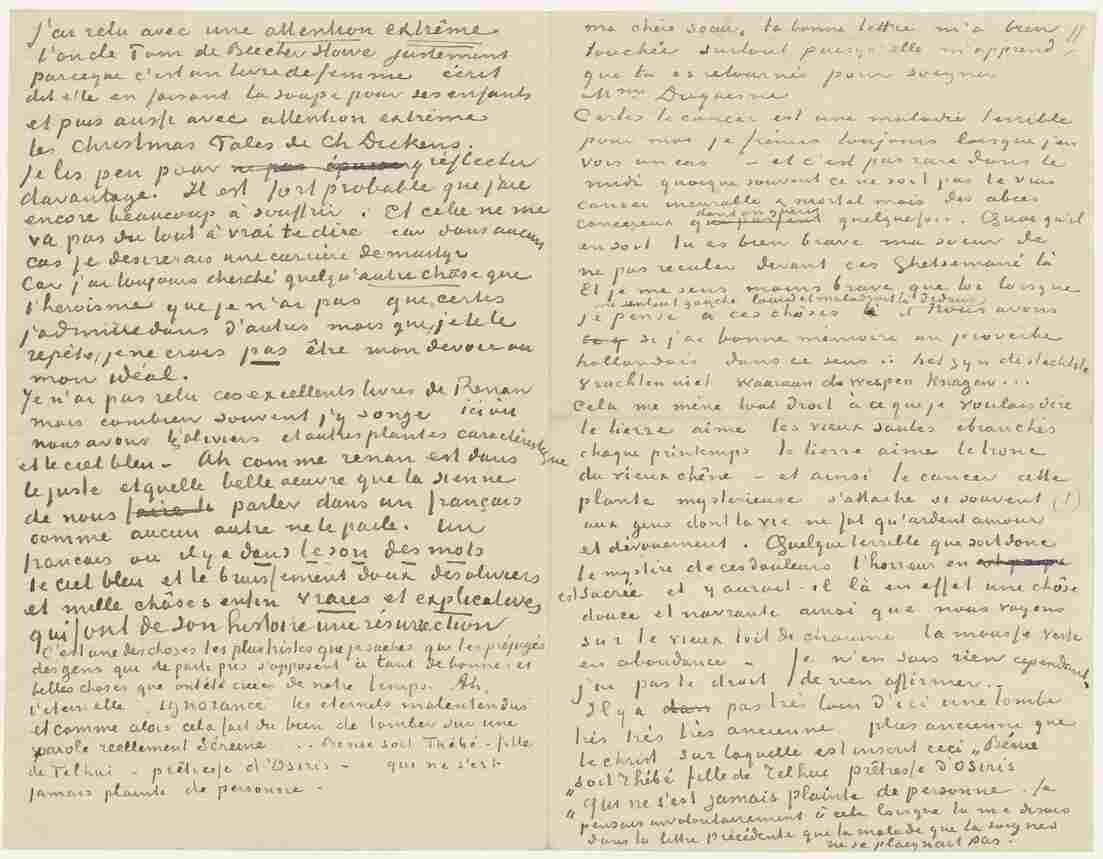 J'ai relu avec une attention extrême
l'oncle Tom de Beecher Stowe justement
parceque c'est un livre de femme écrit
dit elle en faisant la soupe pour ses enfants
et puis aussi avec attention extrême
les Christmas Tales de Ch Dickens.
Je lis peu pour y réflecter
davantage. Il est fort probable que j'aie
encore beaucoup à souffrir. Et cela ne me
va pas du tout à vrai te dire car dans aucun
cas je desirerais une carriere de martyr
Car j'ai toujours cherché quelqu'autre chôse que
l'heroisme que je n'ai pas, que certes
j'admire dans d'autres mais que, je te le
repète, je ne crois pas être mon devoir ou
mon idéal.
Je n'ai pas relu ces excellents livres de Renan
mais combien souvent j'y songe ici où
nous avons les oliviers et autres plantes caractéristique
et le ciel bleu – Ah comme renan est dans
le juste et quelle belle oeuvre que la sienne
de nous parler dans un français
comme aucun autre ne le parle. Un
francais ou il y a dans le son des mots
le ciel bleu et le bruissement doux des oliviers
et mille chôses enfin vraies et explicatives
qui font de son histoire une résurrection
C'est une des choses les plus tristes que je saches que les préjugés
des gens qui de parti pris s'opposent à tant de bonnes et
belles choses que ont été créés de notre temps. Ah
l'eternelle ignorance les eternels malentendus
et comme alors cela fait du bien de tomber sur une
parole reellement Séreine … Benie soit Thébé – fille
de Telhui – prêtresse d'Osiris – qui ne s'est
jamais plainte de personne –
ma chère soeur, ta bonne lettre m'a bien
touché surtout puisqu'elle m'apprend
que tu es retournée pour soigner
Mme Duquesne
Certes le cancer est une maladie terrible
pour moi je frémis toujours lorsque j'en
vois un cas – et c'est pas rare dans le
midi quoique souvent ce ne soit pas le vrai
cancer incurable & mortel mais des abcès
cancereux dont on guérit quelquefois. Quoi qu'il
en soit tu es bien brave ma soeur de
ne pas reculer devant ces Ghetsemané là
Et je me sens moins brave que toi lorsque
je pense à ces chôses là me sentant gauche lourd et maladroit là dedans. Nous avons
si j'ai bonne mémoire un proverbe
hollandais dans ce sens: het zyn de slechtste
vruchten niet waaraan de wespen knagen…
Cela me mène tout droit à ce que je voulais dire
le lierre aime les vieux saules ebranchés
chaque printemps le lierre aime le tronc
du vieux chêne – et ainsi le cancer cette
plante mysterieuse s'attache si souvent (!)
aux gens dont la vie ne fut qu'ardent amour
et dévouement. Quelque terrible que soit donc
le mystère de ces douleurs l'horreur en
est sacrée et y aurait il là en effet une chôse
douce et navrante ainsi que nous voyons
sur le vieux toit de chaume la mousse verte
en abondance – Je n'en sais rien cependant,
j'ai pas le droit de rien affirmer. –
Il y a pas très loin d'ici une tombe
très très très ancienne plus ancienne que
le christ sur laquelle est inscrit ceci „Bénie
„soit Thébé fille de Telhui prêtresse d'Osiris
„qui ne s'est jamais plainte de personne. Je
pensais involontairement à cela lorsque tu me disais
dans ta lettre précédente que la malade que tu soignes
ne se plaignait pas.